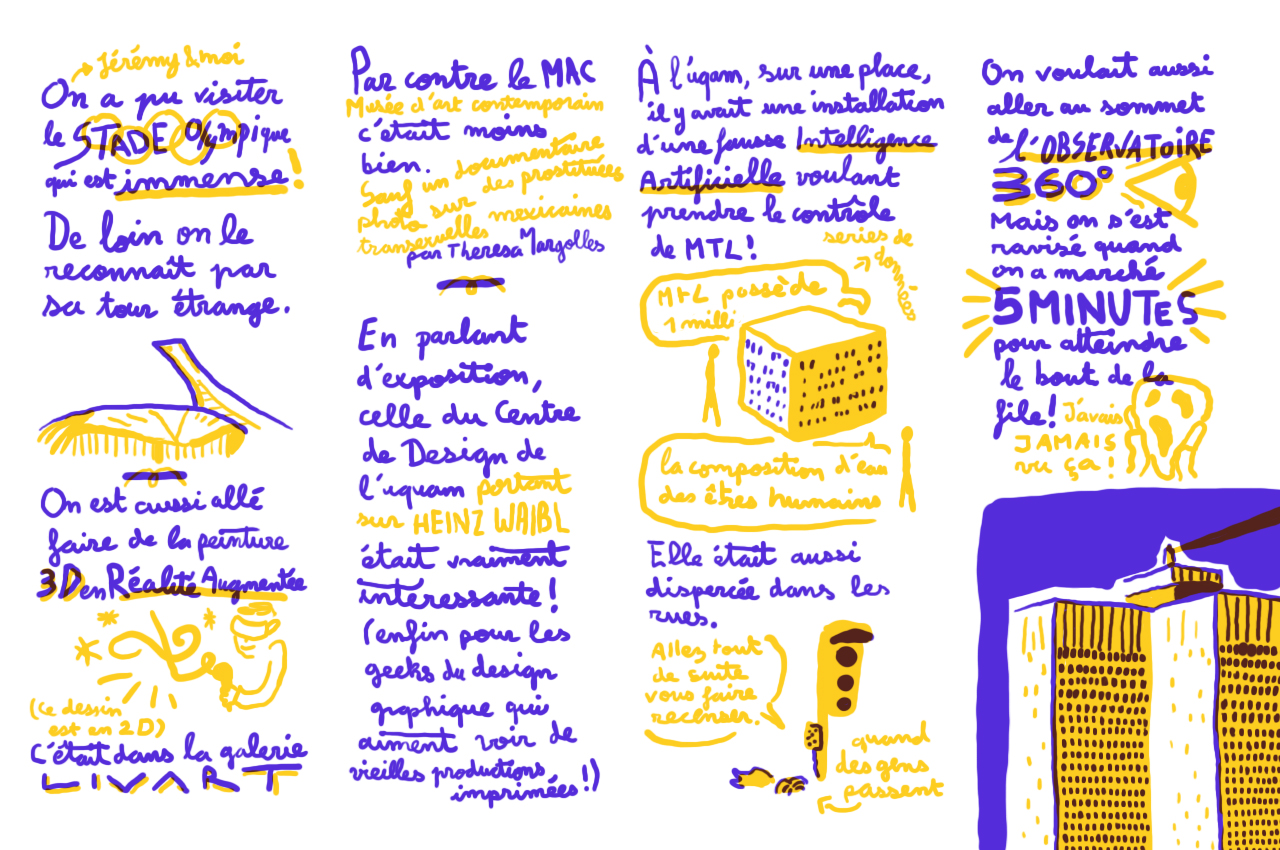 Jérémy & moi
On a pu visiter
le STADE Olympique
qui est immense !
De loin on le
reconnaît par
sa tour étrange.
On est aussi allé
faire de la peinture
3D en Réalité Augmentée
(Ce dessin
est en 2D)
C'était dans la galerie
LIVART
Par contre le MAC
Musée d'art contemporain
c'était moins
bien.
Sauf un documentaire
photo sur des prostituées
transexuelles mexicaines
par Theresa Margolles
En parlant
d'exposition,
celle du Centre
de Design de
l'uquam portant
sur HEINZ WAIBL
était vraiment
intéressante !
(enfin pour les
geeks du design
graphique qui
aiment voir de
vieilles productions
imprimées !)
À l'uqam, sur une place,
il y avait une installation
d'une fausse Intelligence
Artificielle voulant
prendre le contrôle
de MTL !
series de
données
MtL possède
1 milli
la composition d'eau
des êtres humains
Elle était aussi
dispercée dans les
rues.
Allez tout
de suite
vous faire
recenser.
quand
des gens
passent
On voulait aussi
aller au sommet
de l'OBSERVATOIRE
360°
Mais on s'est
ravisé quand
on a marché
5 MINUTES
pour atteindre
le bout de la
file !
J'avais
JAMAIS
vu ça !